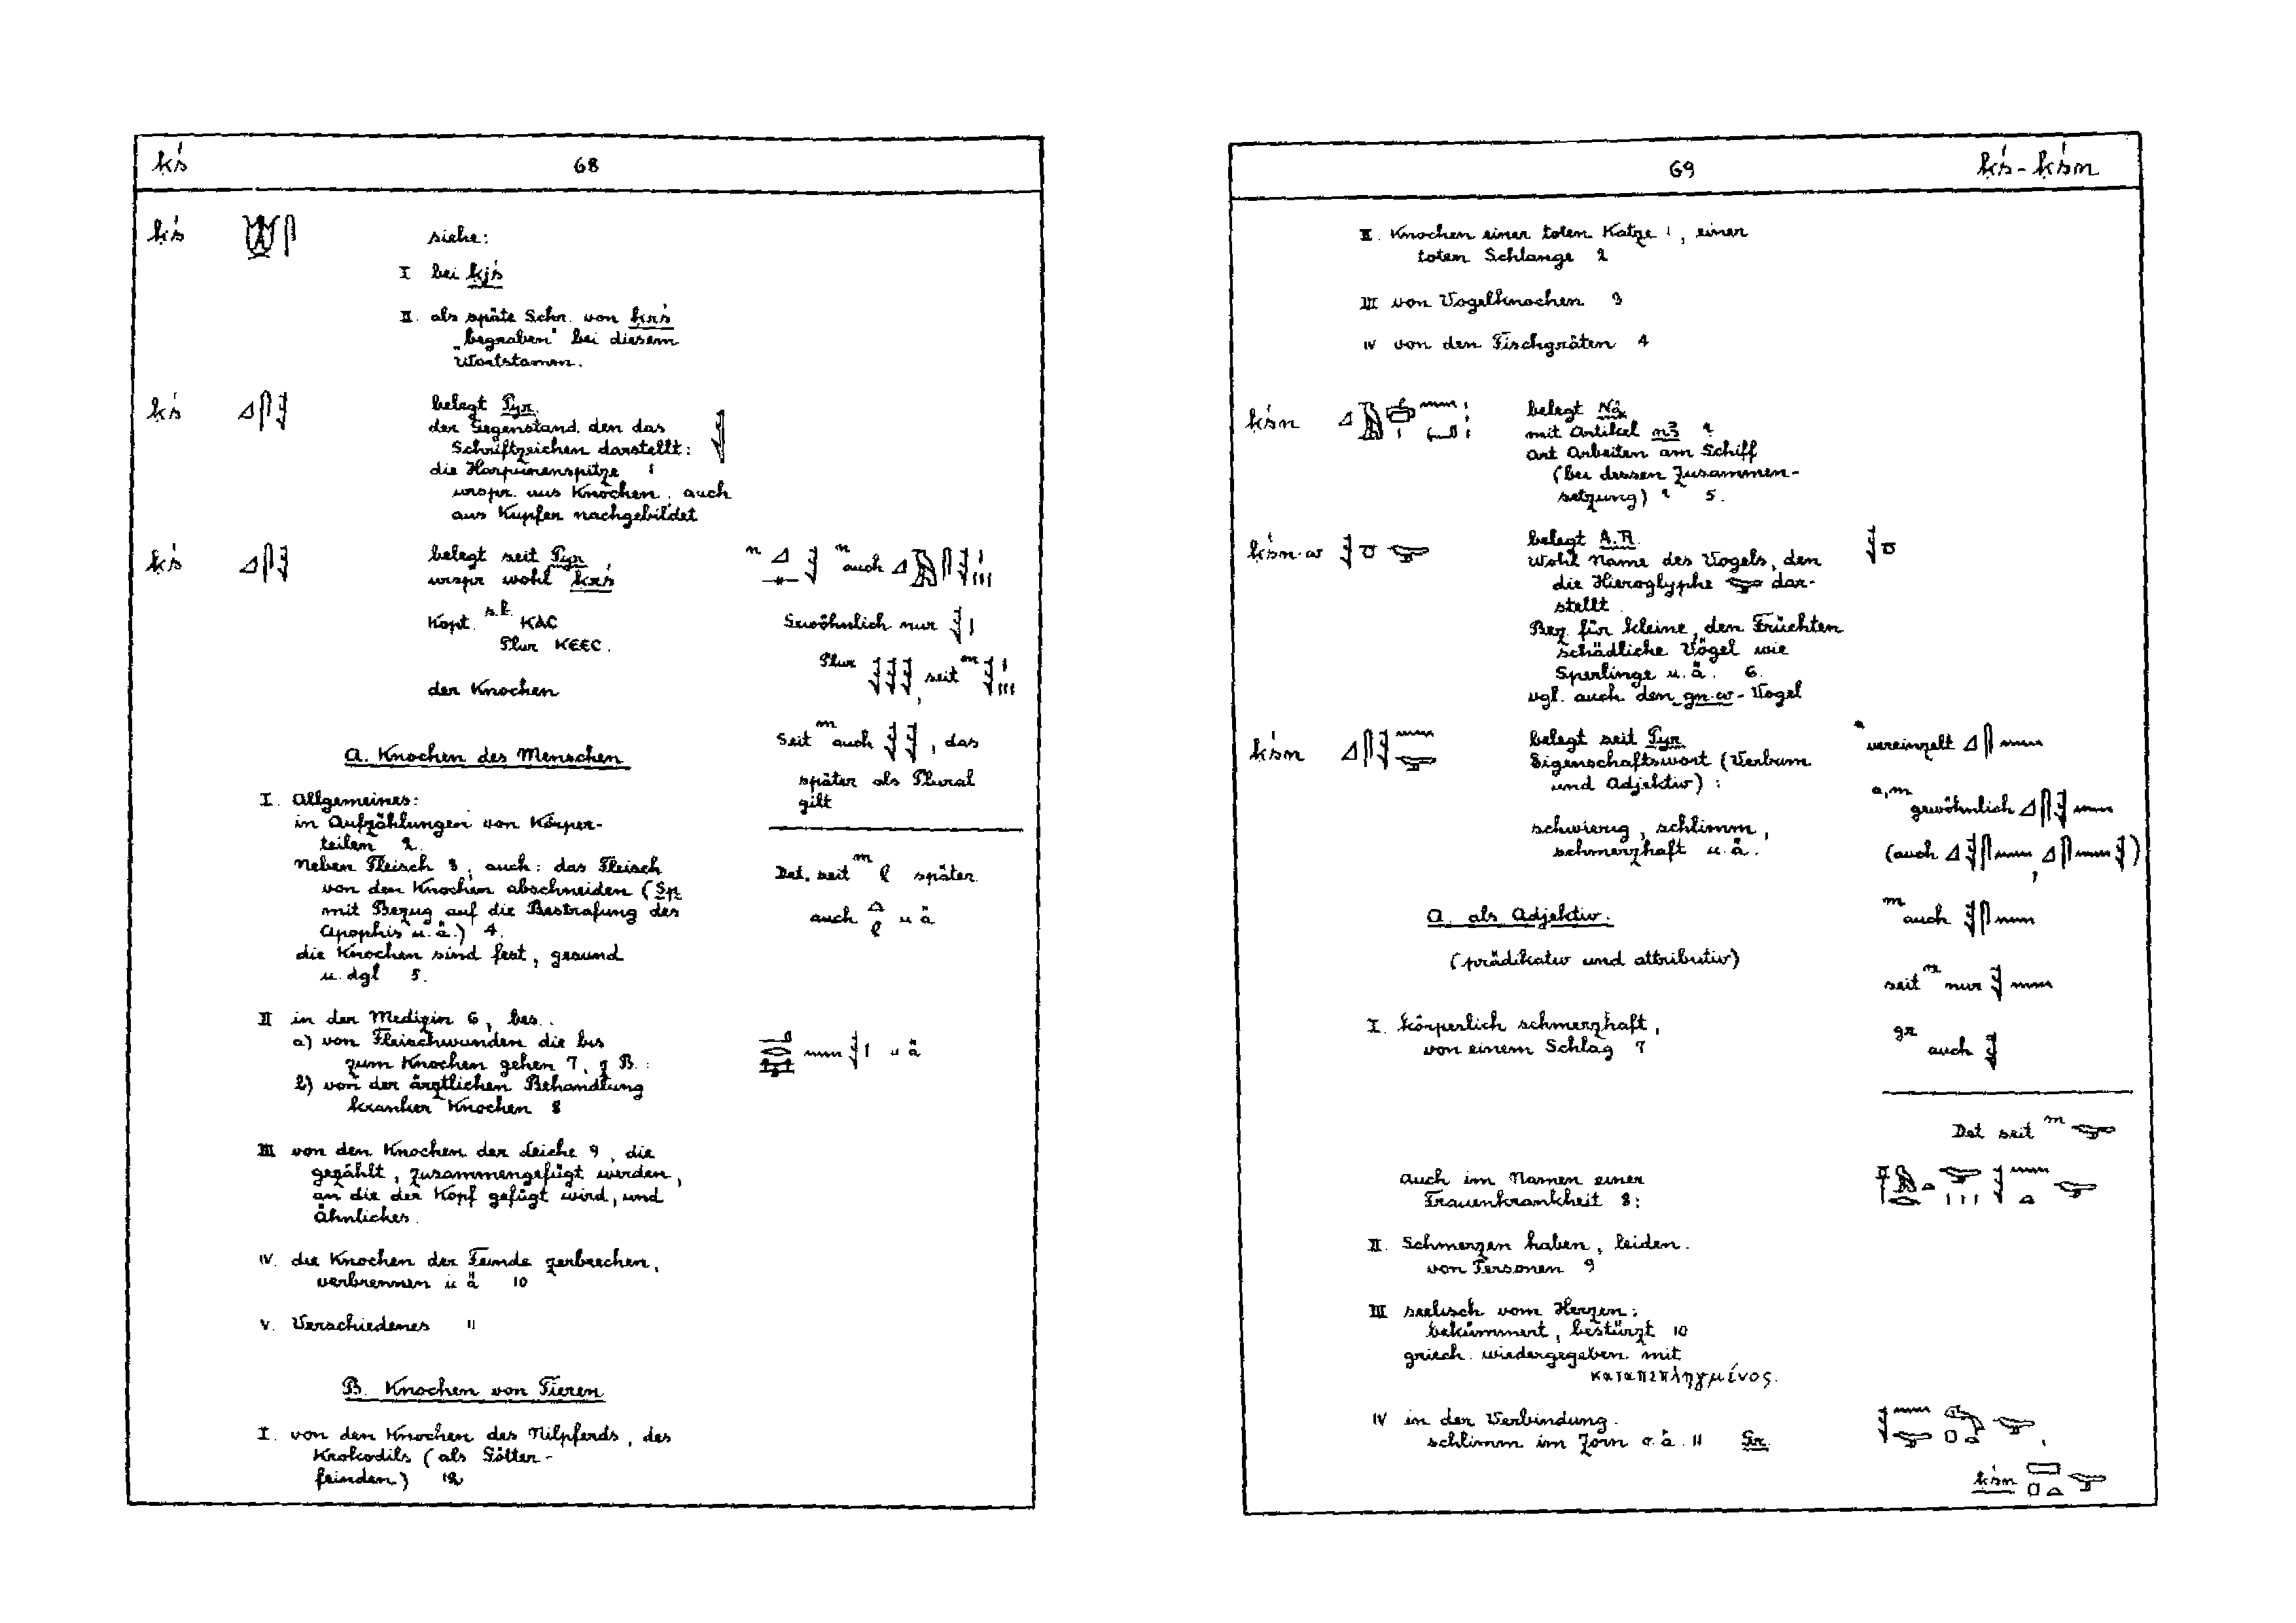 ḳś
68
ḳś
siehe:
I bei ḳjś
II. als späte Schr. von ḳrś
„begraben" bei diesem
Wortstamm.
ḳś
belegt Pyr.
der Gegenstand, den das
Schriftzeichen darstellt:
die Harpunenspitze 1
urspr. aus Knochen, auch
aus Kupfer nachgebildet
ḳś
belegt seit Pyr
urspr wohl ḳrś
n n auch
Kopt. s.b. ⲕⲁⲥ
Plur ⲕⲉⲉⲥ.
Gewöhnlich nur
Plur , seit m
der Knochen
Seit m auch , das
später als Plural
gilt
A. Knochen des Menschen
I. Allgemeines:
in Aufzählungen von Körper-
teilen 2.
neben Fleisch 3, auch: das Fleisch
von den Knochen abschneiden (Sp
mit Bezug auf die Bestrafung des
Apophis u.ä.) 4.
die Knochen sind fest, gesund
u. dgl 5.
Det. seit m später
auch u ä
II in der Medizin 6, bes..
a) von Fleischwunden die bis
zum Knochen gehen 7, z B.:
u ä
b) von der ärztlichen Behandlung
kranker Knochen 8
III von den Knochen der Leiche 9, die
gezählt, zusammengefügt werden,
an die der Kopf gefügt wird, und
ähnliches.
IV. die Knochen der Feinde zerbrechen,
verbrennen u ä 10
V. Verschiedenes 11
B. Knochen von Tieren
I. von den Knochen des Nilpferds, des
Krokodils (als Götter-
feinden) 12
69
ḳś - ḳśn
II. Knochen einer toten Katze 1, einer
toten Schlange 2
III von Vogelknochen 3
IV von den Fischgräten 4
ḳśn
belegt Nä
mit Artikel n3 ?
Art Arbeiten am Schiff
(bei dessen Zusammen-
setzung) ? 5.
ḳśn.w
belegt A.R.
Wohl Name des Vogels, den
die Hieroglyphe dar-
stellt.
Bez. für kleine, den Früchten
schädliche Vögel wie
Sperlinge u.ä. 6.
vgl. auch den gn.w-Vogel
ḳśn
belegt seit Pyr.
Eigenschaftswort (Verbum
und Adjektiv):
schwierig, schlimm,
schmerzhaft u.ä.
vereinzelt
a,m gewöhnlich
(auch , )
m auch
seit m nur
gr auch
Det seit m
A. als Adjektiv.
(prädikativ und attributiv)
I. körperlich schmerzhaft,
von einem Schlag 7
auch im Namen einer
Frauenkrankheit 8:
II. Schmerzen haben, leiden.
von Personen 9
III seelisch vom Herzen:
bekümmert, bestürzt 10
griech. wiedergegeben mit
καταπεπληγμένος.
IV in der Verbindung.
schlimm im Zorn o.ä. 11 Gr.
ḳśn